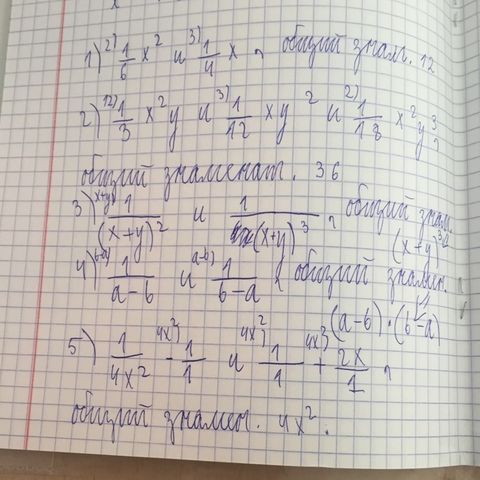 1) ²⁾1/6 x² и ³⁾1/4 x, общий знам. 12
2) ¹²⁾1/3 x²y и ³⁾1/12 xy² и ²⁾1/18 x²y³,
общий знаменат. 36
3) ˣ⁺ʸ⁾1/(x+y)² и 1/(x+y)³, общий знам.
(x+y)³
4) ᵇ⁻ᵃ⁾1/(a-b) и ᵃ⁻ᵇ⁾1/(b-a), общий знамен.
(a-b)·(b-a)
5) 1/4x² - ⁴ˣ²⁾1/1 и ⁴ˣ²⁾1/1 + ⁴ˣ²⁾2x/1,
общий знамен. 4x².